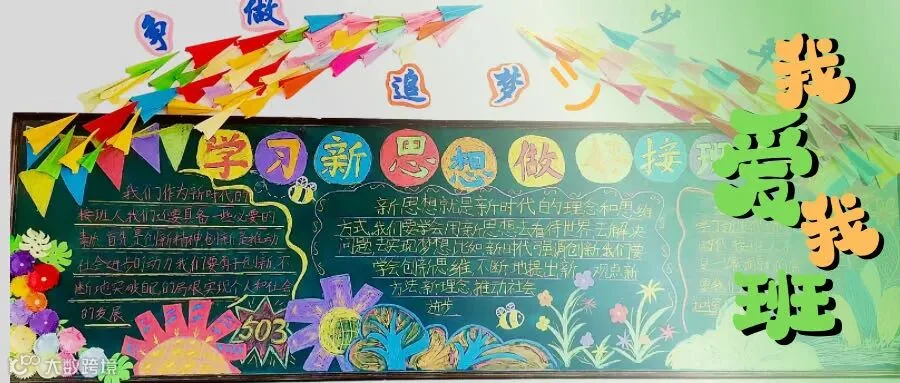 争做
少
追梦
我爱我班
学习新思想做
接班
我们作为新时代的
接班人我们还要具备一些必要的
首先是创新精神创新是推动
社会进步的动力我们要有于创新,不
断地突破自己的局限实现个人和社会
的发展
新思想就是新时代的理念和思维
方式,我们要学会用新思想去看待世界去解决
问题去实现梦想比如新时代强调创新我们要
学会创新思维不断地提出新观点新
方法新理念推动社会
进步
503
大数跨境